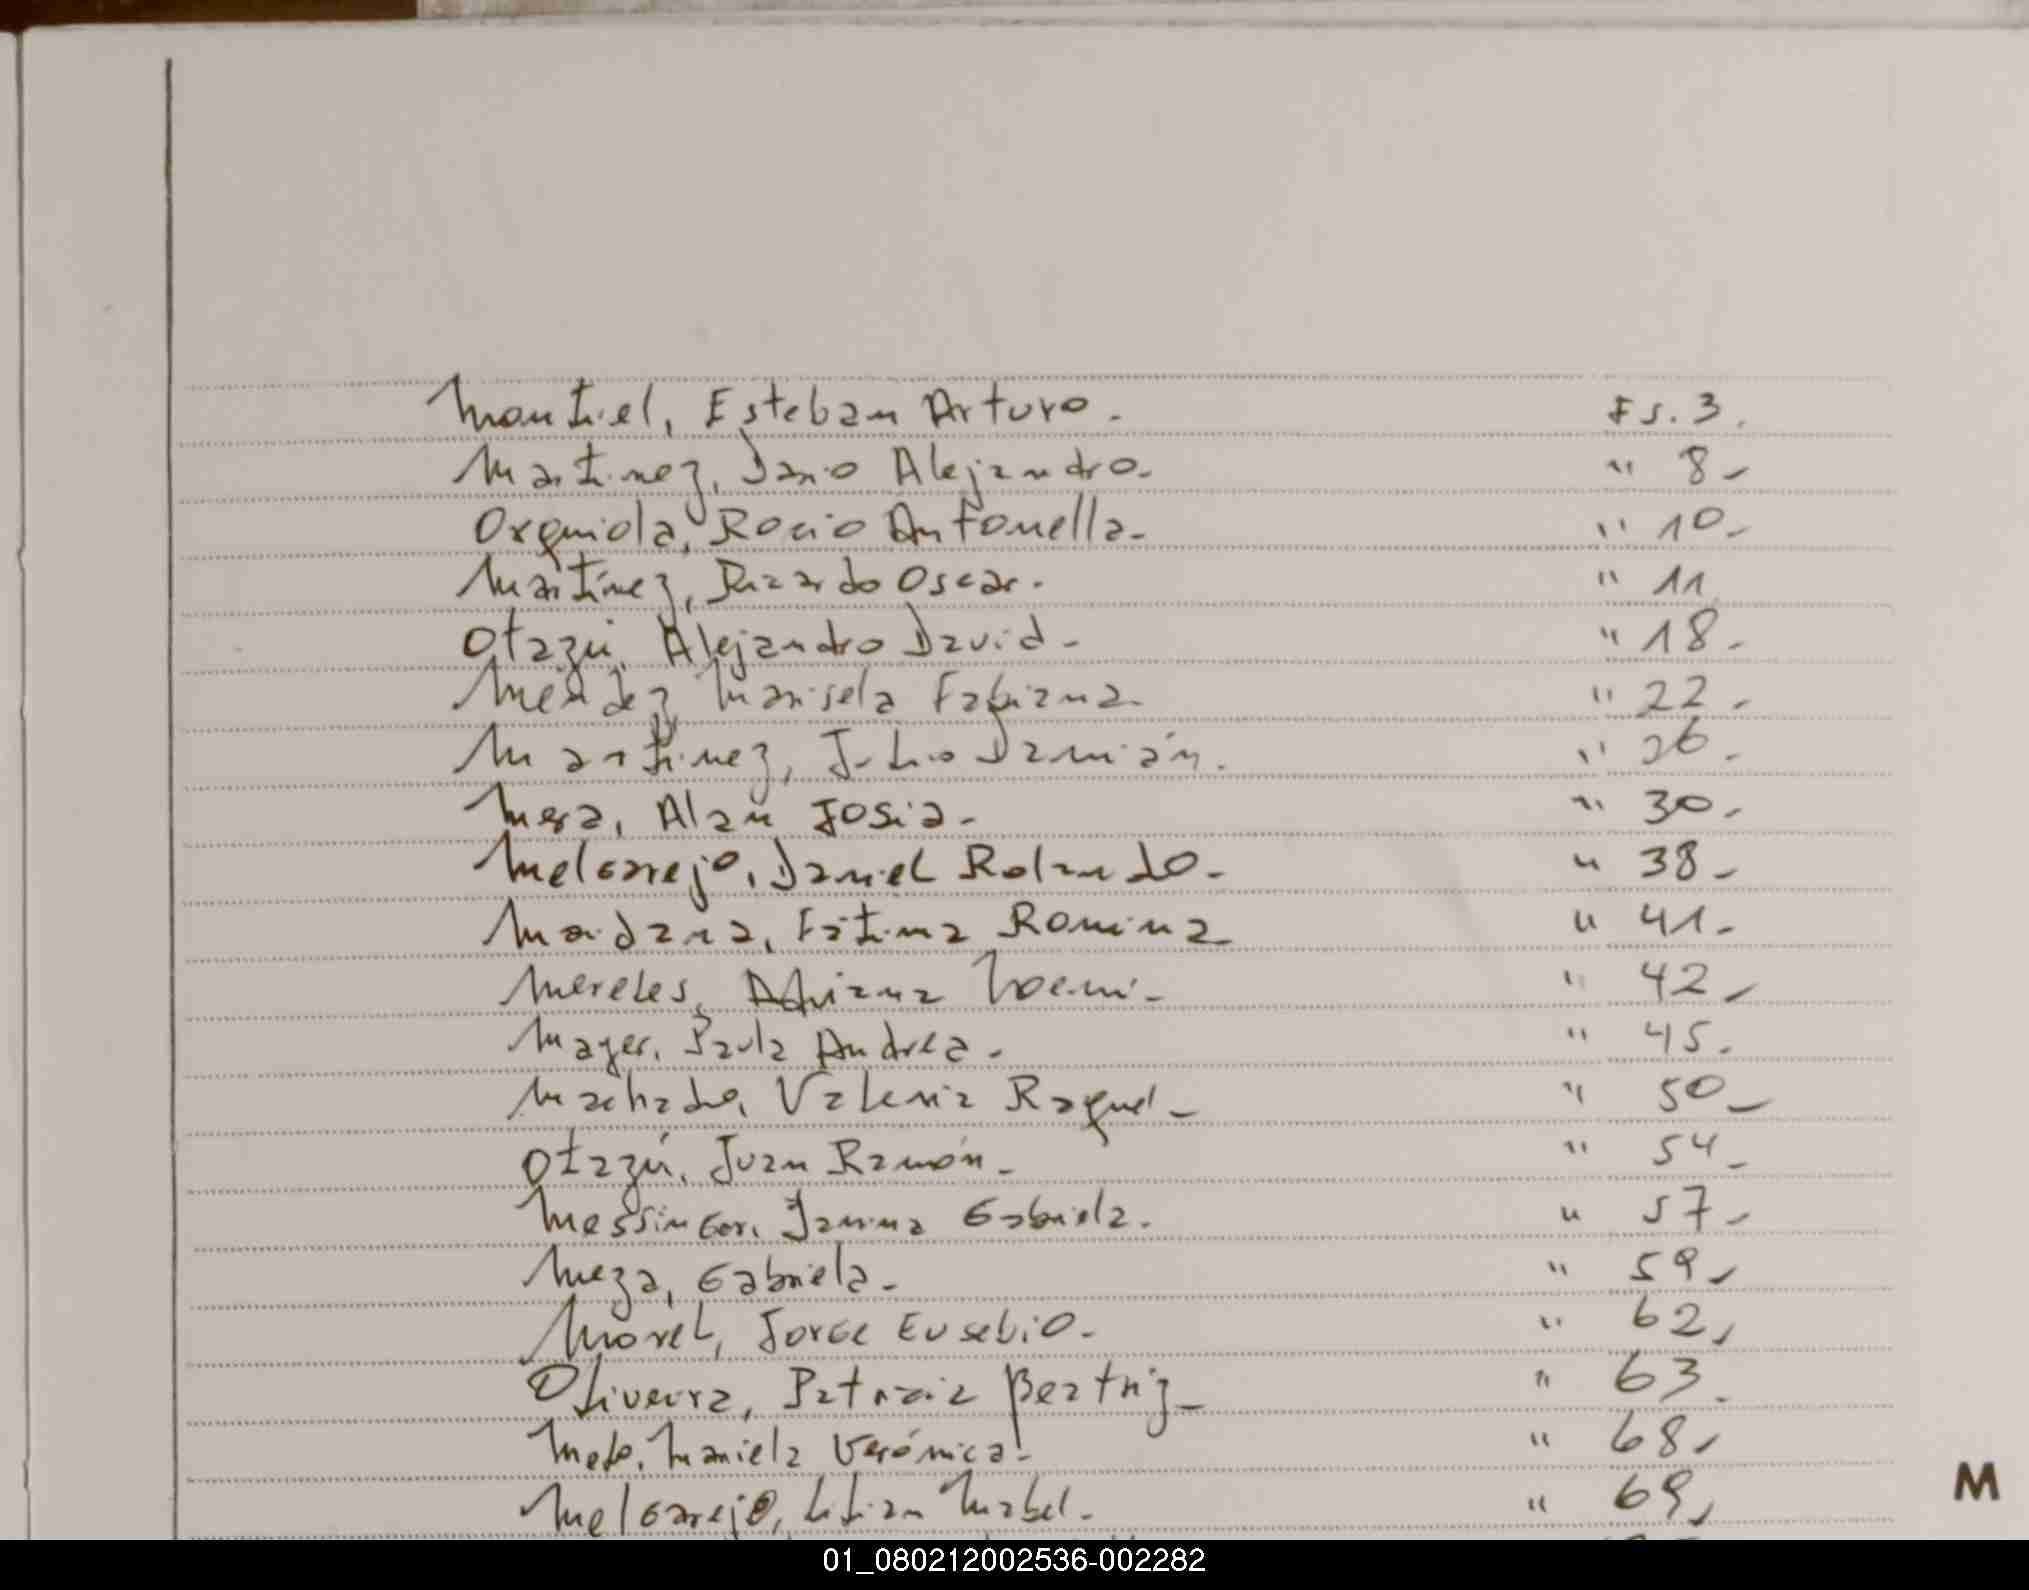 Montiel, Esteban Arturo. Fs. 3.
Martinez, Dario Alejandro. " 8-
Orquiola, Rocio Antonella- " 10-
Martínez, Ricardo Oscar. " 11
Otazú, Alejandro David- " 18-
Mendez Marisela Fabiana. " 22-
Martinez, Julio Damián. " 26-
Mesa, Alan Josia- " 30-
Melgarejo, Daniel Rolando- " 38-
Maidana, Fátima Romina- " 41-
Mereles, Adriana Noemi- " 42-
Mayer, Paula Andrea- " 45.
Machado, Valeria Raquel- " 50-
Otazú, Juan Ramón- " 54-
Messinger, Janina Gabriela. " 57-
Meza, Gabriela- " 59-
Morel, Jorge Eusebio- " 62-
Oliveira, Patricia Beatriz- " 63.
Mariela Verónica- " 68-
Melgarejo, Lilian Mabel- " 69-
M
01_080212002536-002282